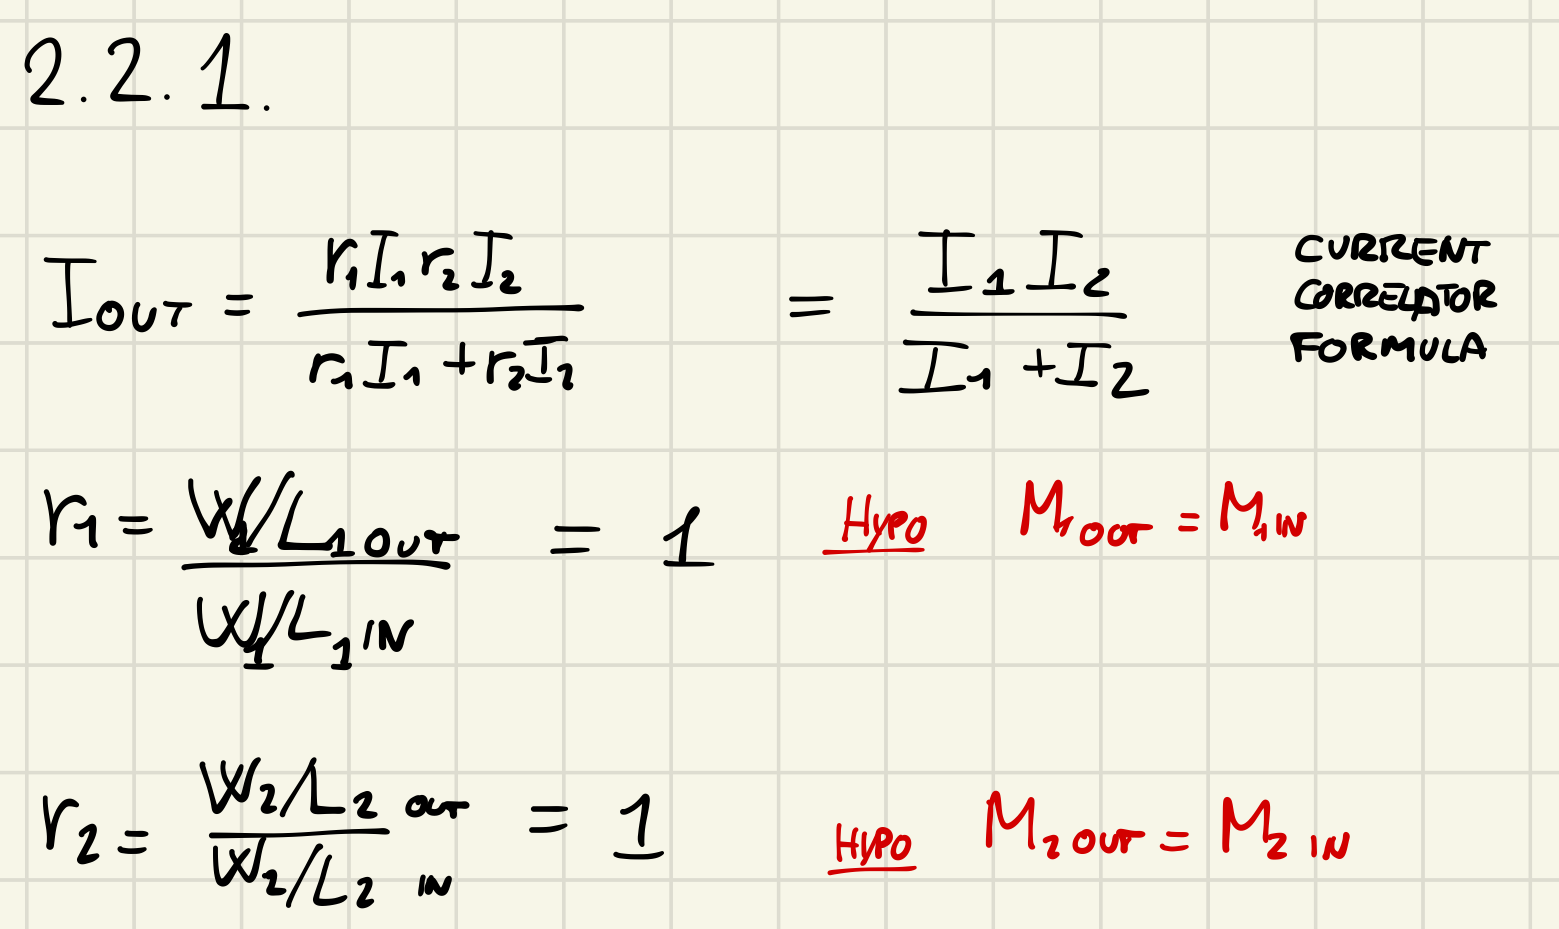 2.2.1.
I_OUT = (r_1 I_1 r_2 I_2) / (r_1 I_1 + r_2 I_2) = (I_1 I_2) / (I_1 + I_2) CURRENT CORRELATOR FORMULA
r_1 = (W_1/L_1 OUT) / (W_1/L_1 IN) = 1 HYPO M_1 OUT = M_1 IN
r_2 = (W_2/L_2 OUT) / (W_2/L_2 IN) = 1 HYPO M_2 OUT = M_2 IN